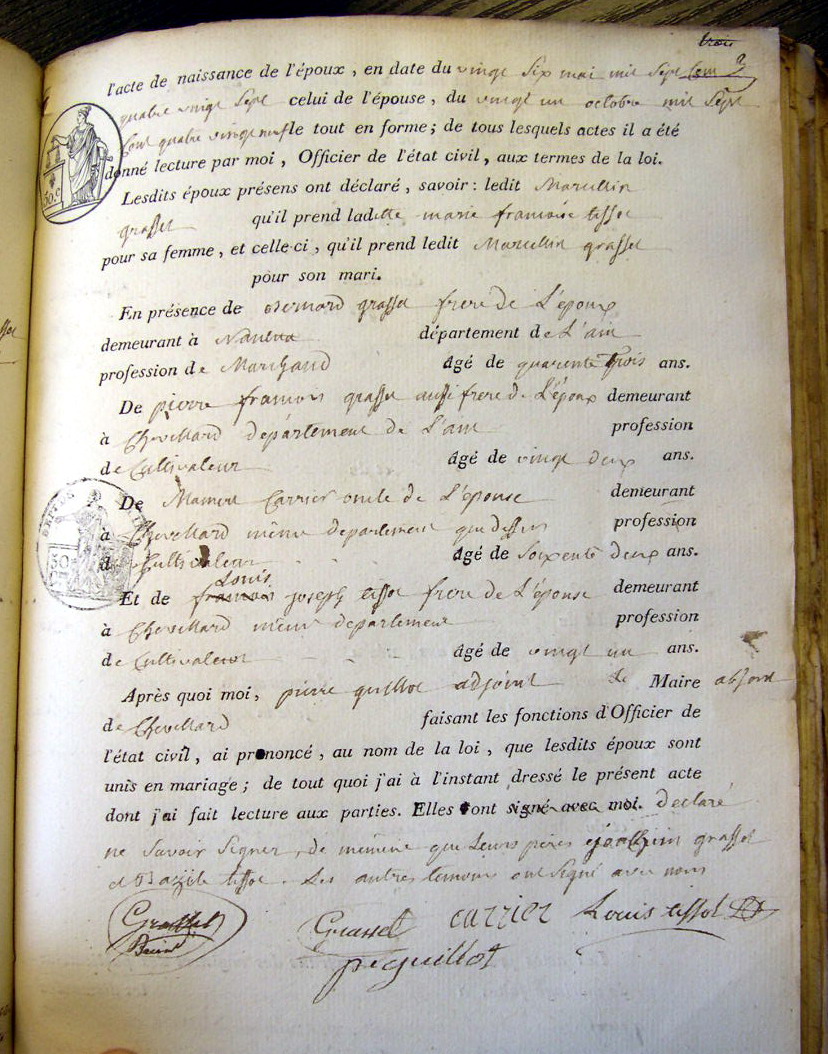 trois
l'acte de naissance de l'époux, en date du vingt six mai mil sept cent 3
quatre vingt sept celui de l'épouse, du vingt un octobre mil sept
Cent quatre vingt neuf le tout en forme; de tous lesquels actes il a été
donné lecture par moi, Officier de l'état civil, aux termes de la loi.
Lesdits époux présens ont déclaré, savoir: ledit Marcellin
grasset qu'il prend ladite marie francoise tissot
pour sa femme, et celle-ci, qu'il prend ledit Marcellin grasset
pour son mari.
En présence de Bernard grasset frere de L'époux
demeurant à Nantua département de L'ain
profession de Marchand âgé de quarente trois ans.
De pierre francois grasset aussi frere de L'époux demeurant
à Chevillard département de L'ain profession
de Cultivateur âgé de vingt deux ans.
De Mamert Carrier oncle de L'épouse demeurant
à Chevillard même département que dessus profession
de Cultivateur âgé de Soixente deux ans.
Louis
Et de francois joseph tissot frere de L'épouse demeurant
à Chevillard même departement profession
de Cultivateur âgé de vingt un ans.
Après quoi moi, pierre guillot adjoint de Maire absent
de Chevillard faisant les fonctions d'Officier de
l'état civil, ai prononcé, au nom de la loi, que lesdits époux sont
unis en mariage; de tout quoi j'ai à l'instant dressé le présent acte
dont j'ai fait lecture aux parties. Elles ont signé avec moi. declaré
ne Savoir Signer, de même que Leurs pères grasset
et tissot. Les autres temoins ont Signé avec nous
Grasset Grasset carrier Louis tissot
pe guillot
30 c